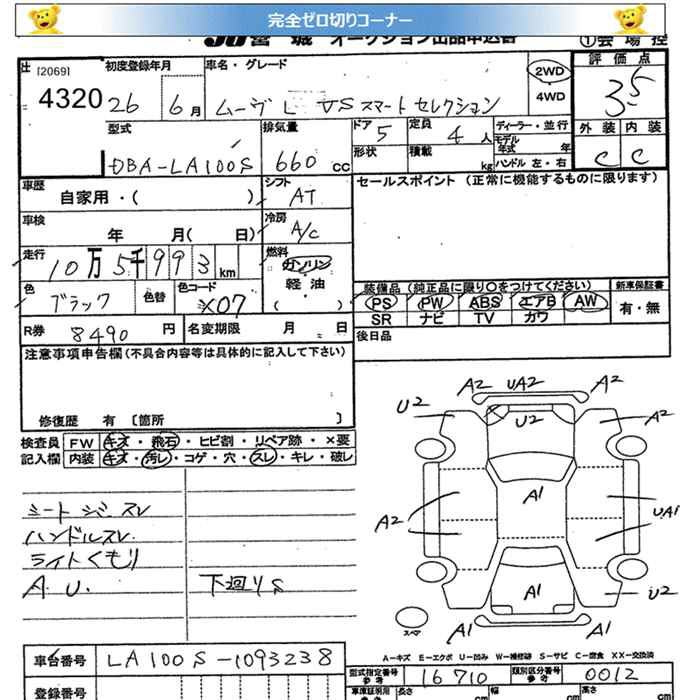 完全ゼロ切りコーナー
JU 宮城 オークション出品申込書
①会場控
[2069]
4320
初度登録年月
26年 6月
車名・グレード
ムーヴ L VS スマートセレクション
2WD
4WD
評価点
3.5
外装 内装
C C
型式
DBA-LA100S
排気量
660 cc
ドア 5
定員 4人
形状
積載 kg
ディーラー・並行
モデル年式 年
ハンドル 左・右
車歴
自家用・( )
シフト AT
セールスポイント (正常に機能するものに限ります)
車検
年 月( 日)
冷房 A/C
走行
10万5千993km
燃料
ガソリン
軽油
( )
色
ブラック
色替
色コード
X07
装備品 (純正品に限り○をつけてください)
新車保証書
PS PW ABS エアB AW
SR ナビ TV カワ
有・無
R券 8490円
名変期限 月 日
後日品
注意事項申告欄 (不具合内容等は具体的に記入して下さい)
修復歴 有 [箇所 ]
検査員記入欄
FW キズ・飛石・ヒビ割・リペア跡・×要
内装 キズ・汚レ・コゲ・穴・スレ・キレ・破レ
シートシミ スレ
ハンドルスレ
ライトくもり
A. U.
下廻りS
A2 UA2 A2
U2 U2 A2
A1
A2 UA1
A1 U2
スペア A1 A1
A-キズ E-エクボ U-凹み W-補修跡 S-サビ C-腐食 XX-交換済
車台番号
LA100S-1093238
型式指定番号 参考
16710
類別区分番号 参考
0012
登録番号
車庫証明用 参考
長さ cm
幅 cm
高さ cm